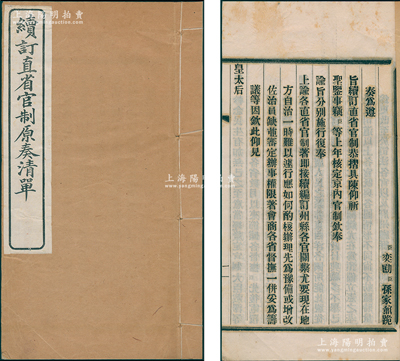 續訂直省官制原奏清單
臣奕劻臣孫家鼐跪
奏爲遵
旨續訂直省官制恭摺具陳仰祈
聖鑒事竊臣等上年核定京內官制欽奉
諭旨分別施行復奉
上諭各直省官制著卽接續編訂州縣各官關繫尤要現在地
方自治一時難以遽行應如何酌核辦理先爲豫備或增改
佐治員缺並審定辦事權限著會商各省督撫一併妥爲籌
議等因欽此仰見
皇太后
上海陽明拍賣
上海陽明拍賣